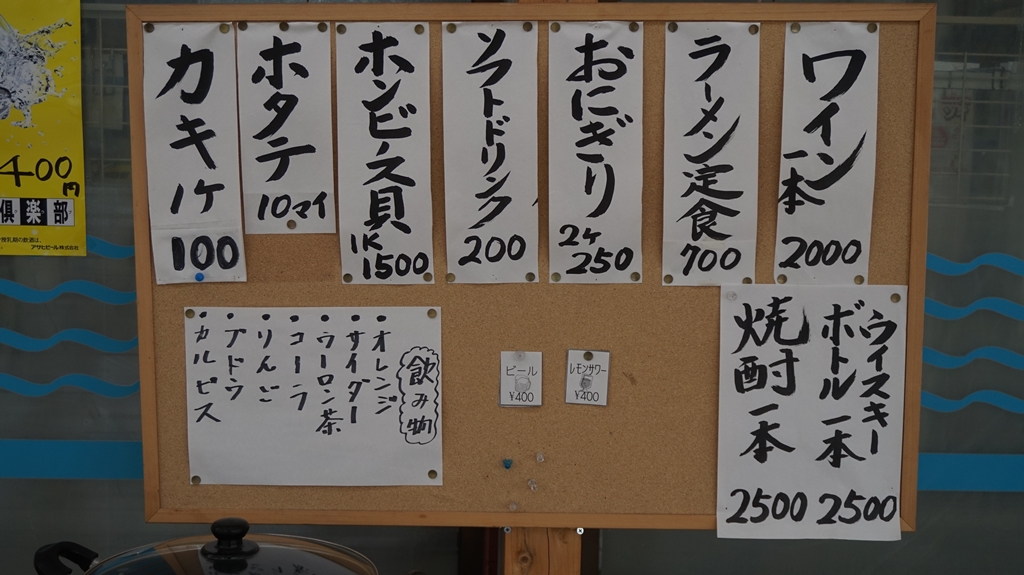 ワイン
一本
2000
ラーメン定食
700
おにぎり
2ケ
250
ソフトドリンク
200
ホンビノス貝
1K
1500
ホタテ
10マイ
カキ
1ケ
100
ウイスキー
ボトル一本
2500
焼酎一本
2500
飲み物
・オレンジ
・サイダー
・ウーロン茶
・コーラ
・りんご
・ブドウ
・カルピス
ビール
¥400
レモンサワー
¥400
400円
倶楽部
アサヒビール株式会社